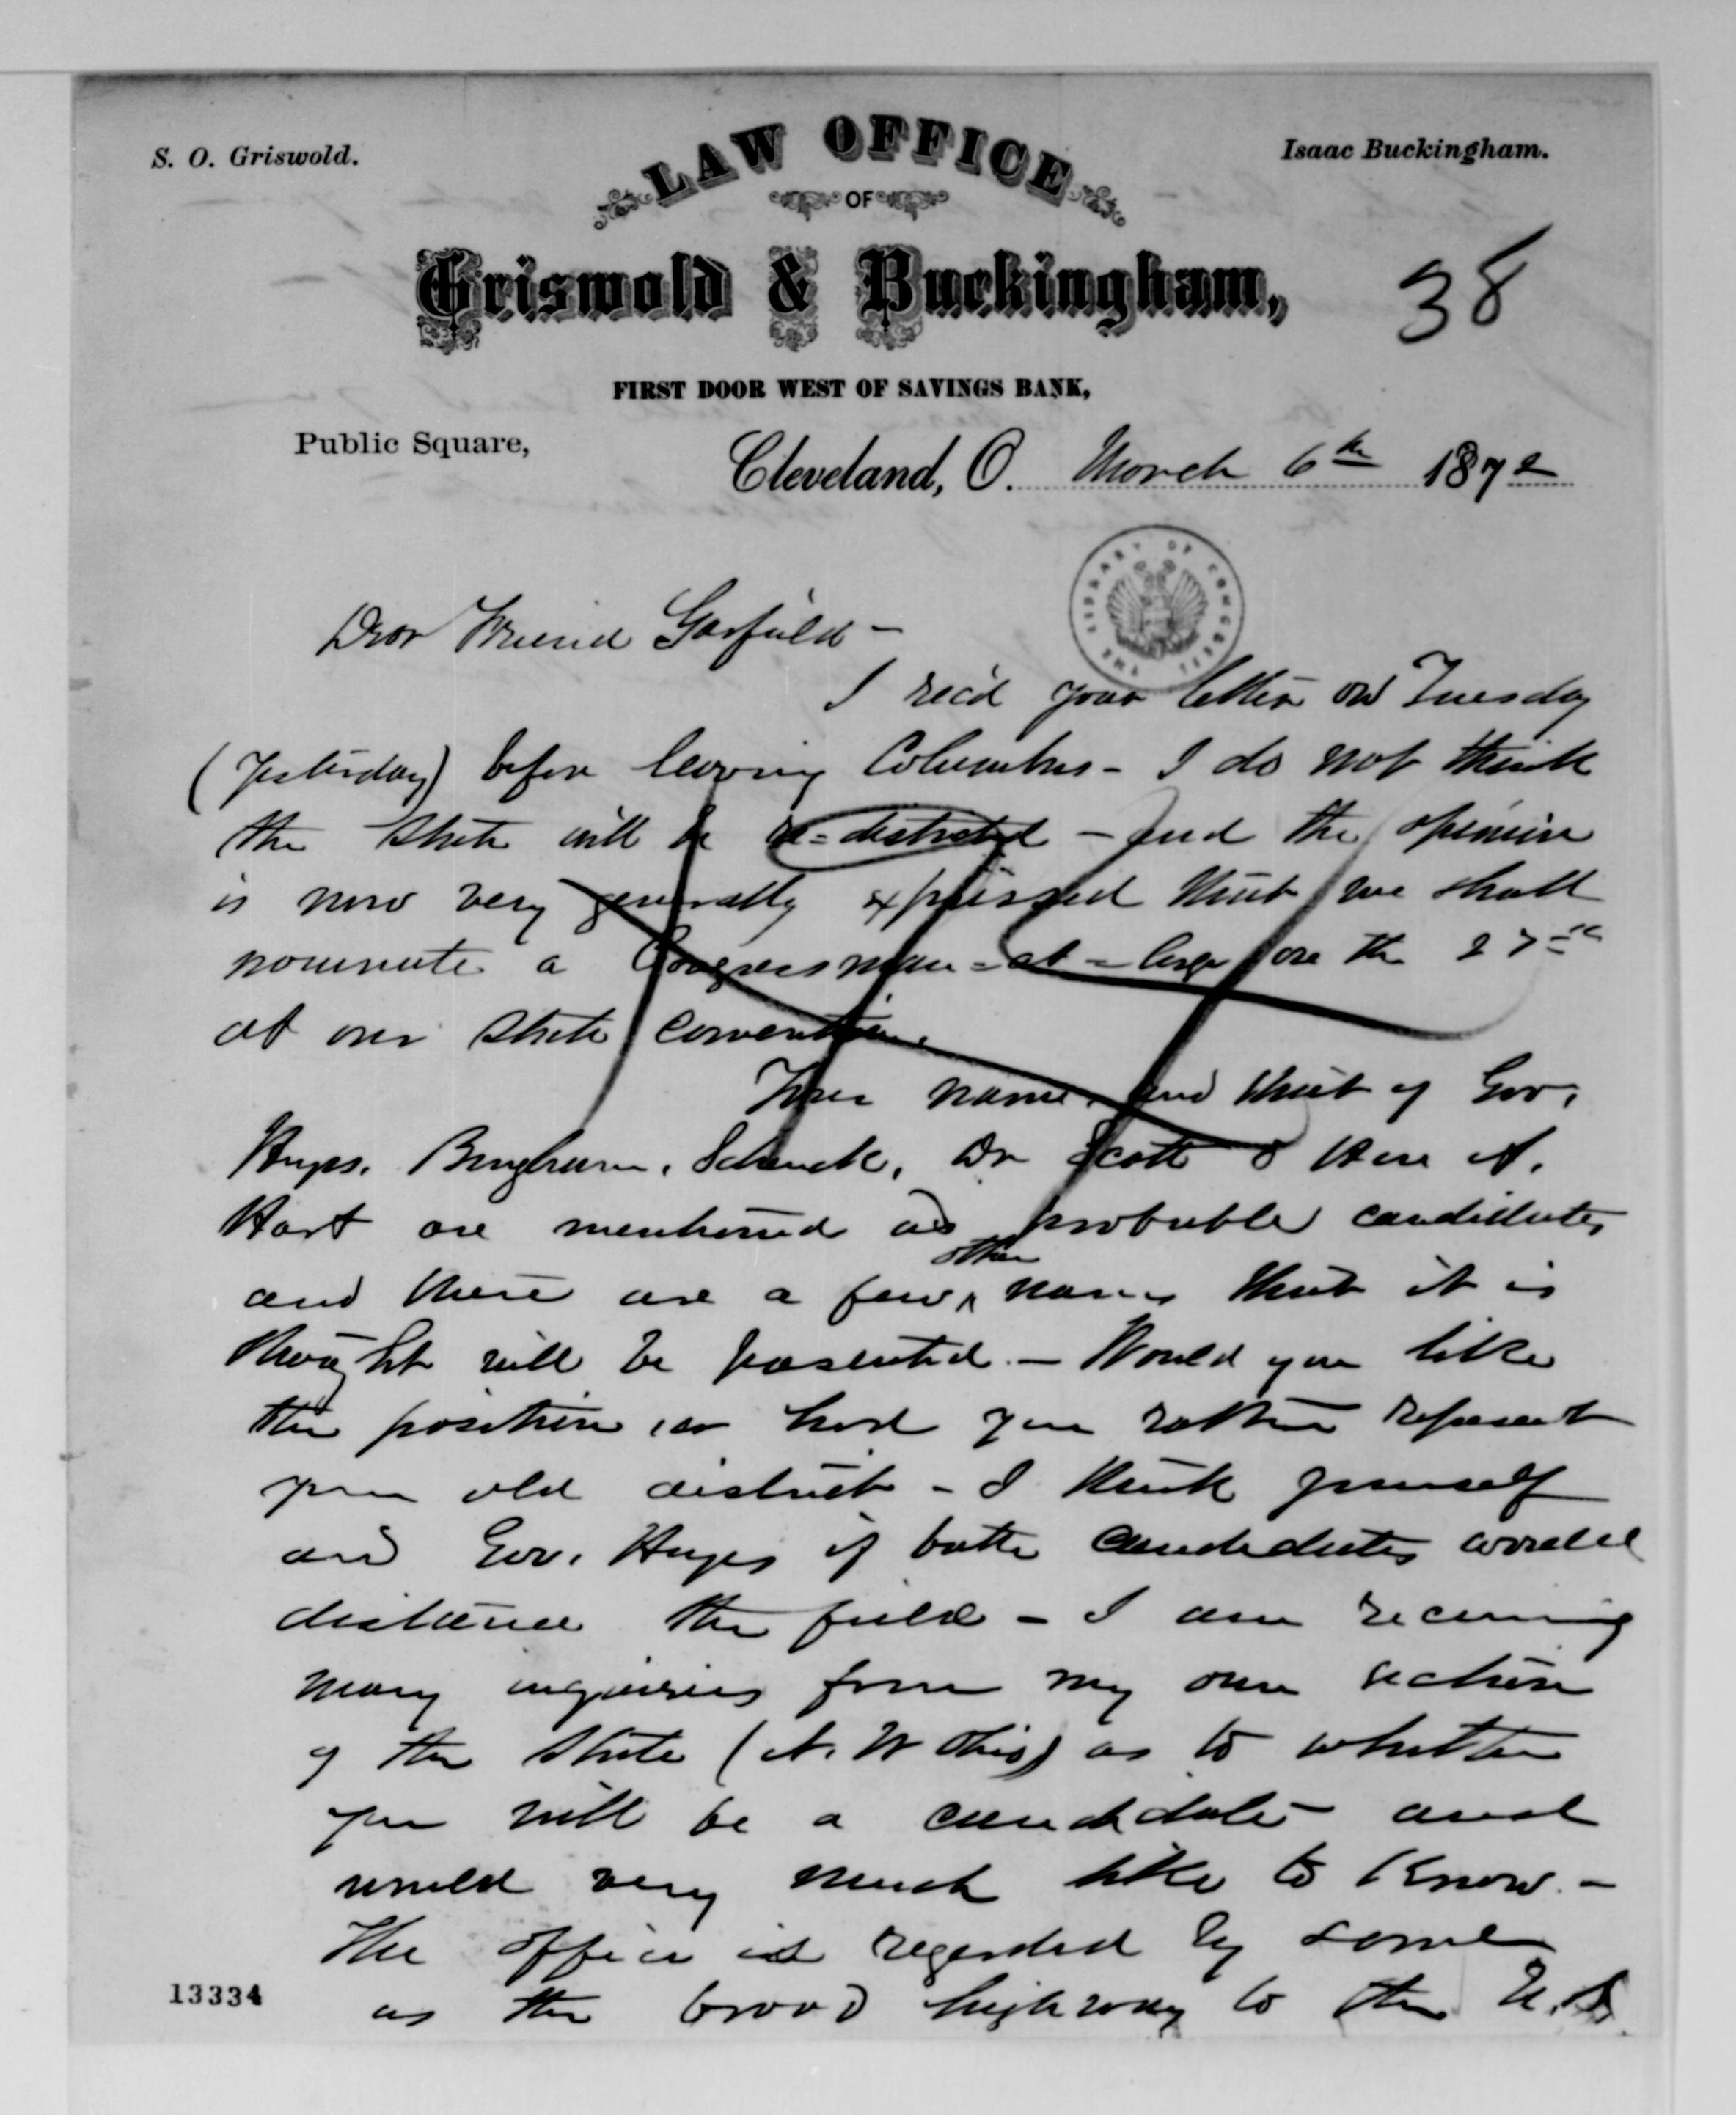 S. O. Griswold.
Isaac Buckingham.
LAW OFFICE
OF
Griswold & Buckingham,
38
FIRST DOOR WEST OF SAVINGS BANK,
Public Square,
Cleveland, O. March 6th 1872
THE LIBRARY OF CONGRESS
Dear Friend Garfield -
I rec'd your letter on Tuesday
(yesterday) before leaving Columbus - I do not think
the State will be re-districted - and the opinion
is now very generally expressed that we shall
nominate a Congressman-at-large on the 27th
at our State convention.
Your name and that of Gov.
Hayes, Bingham, Schenck, Dr Scott & A.
Hart are mentioned as probable candidates
and there are a few other names that it is
thought will be presented - Would you like
the position or had you rather represent
your old district - I think yourself
and Gov. Hayes if both candidates would
distance the field - I am receiving
many inquiries from my own section
of the State (N. W Ohio) as to whether
you will be a candidate and
would very much like to know. -
The office is regarded by some
as the broad highway to the U.S.
13334